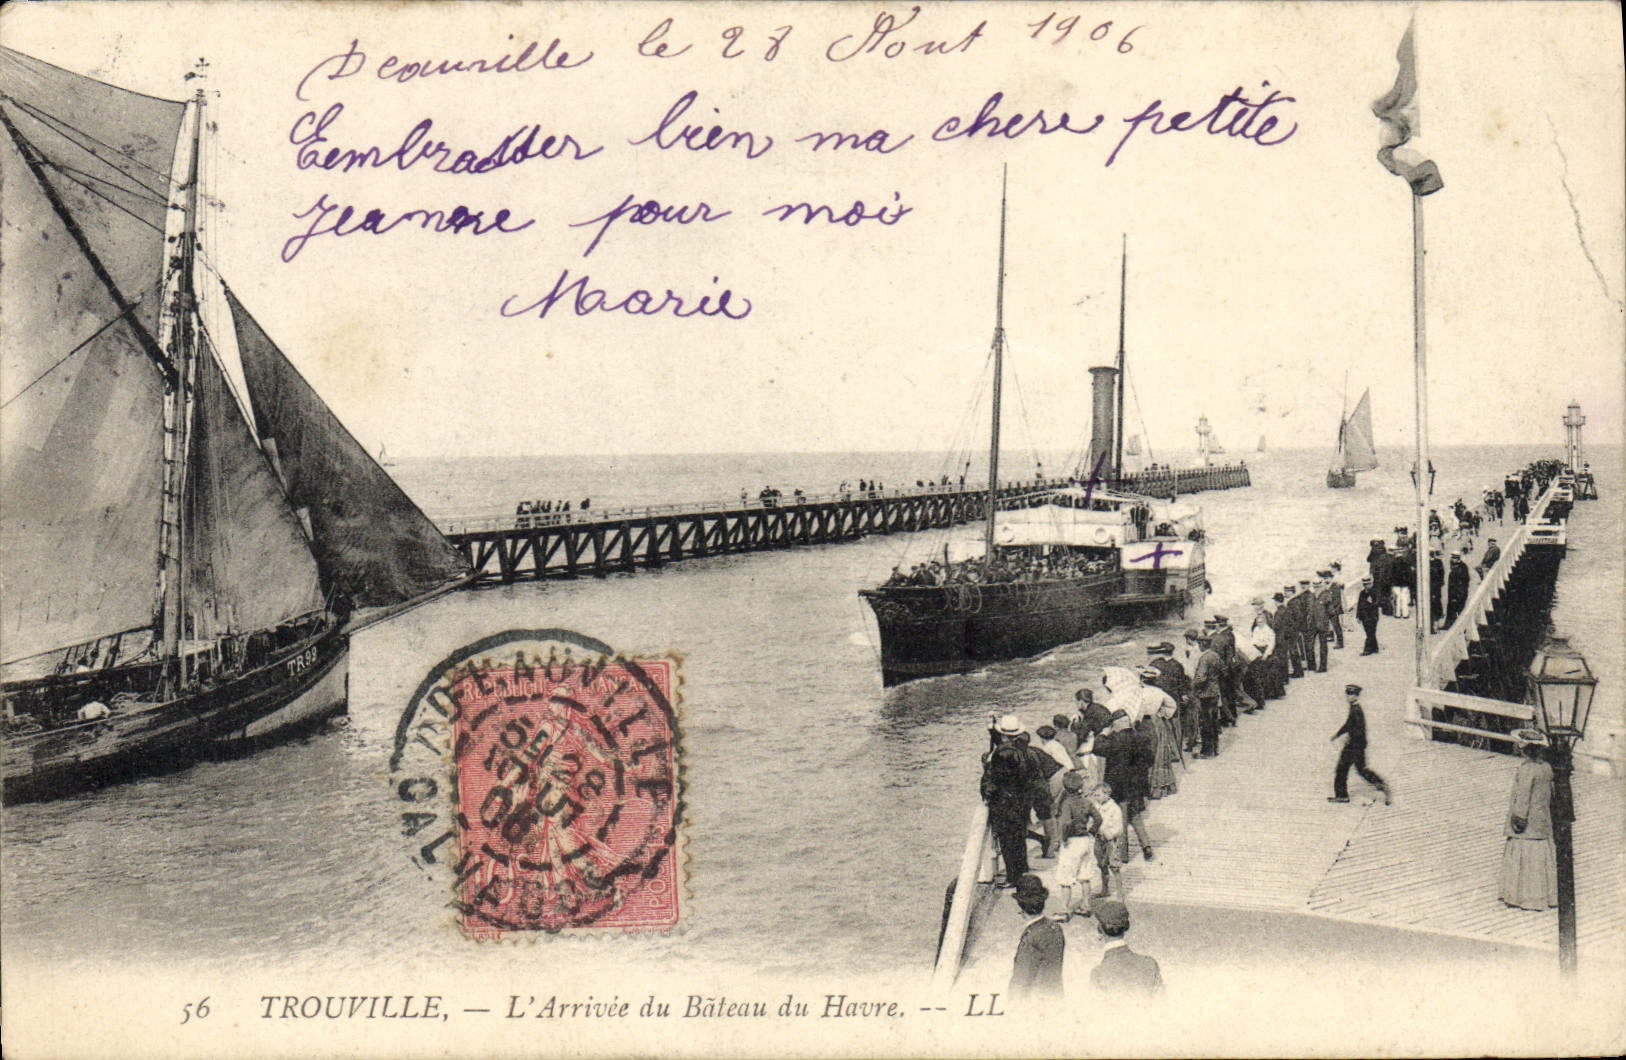 Deauville le 28 Aout 1906
Eembrasser bien ma chere petite
Jeanne pour moi
Marie
TR 99
REPUBLIQUE FRANÇAISE
DEAUVILLE
28
06
CALVADOS
POSTES
56 TROUVILLE, — L'Arrivée du Bâteau du Havre. -- LL